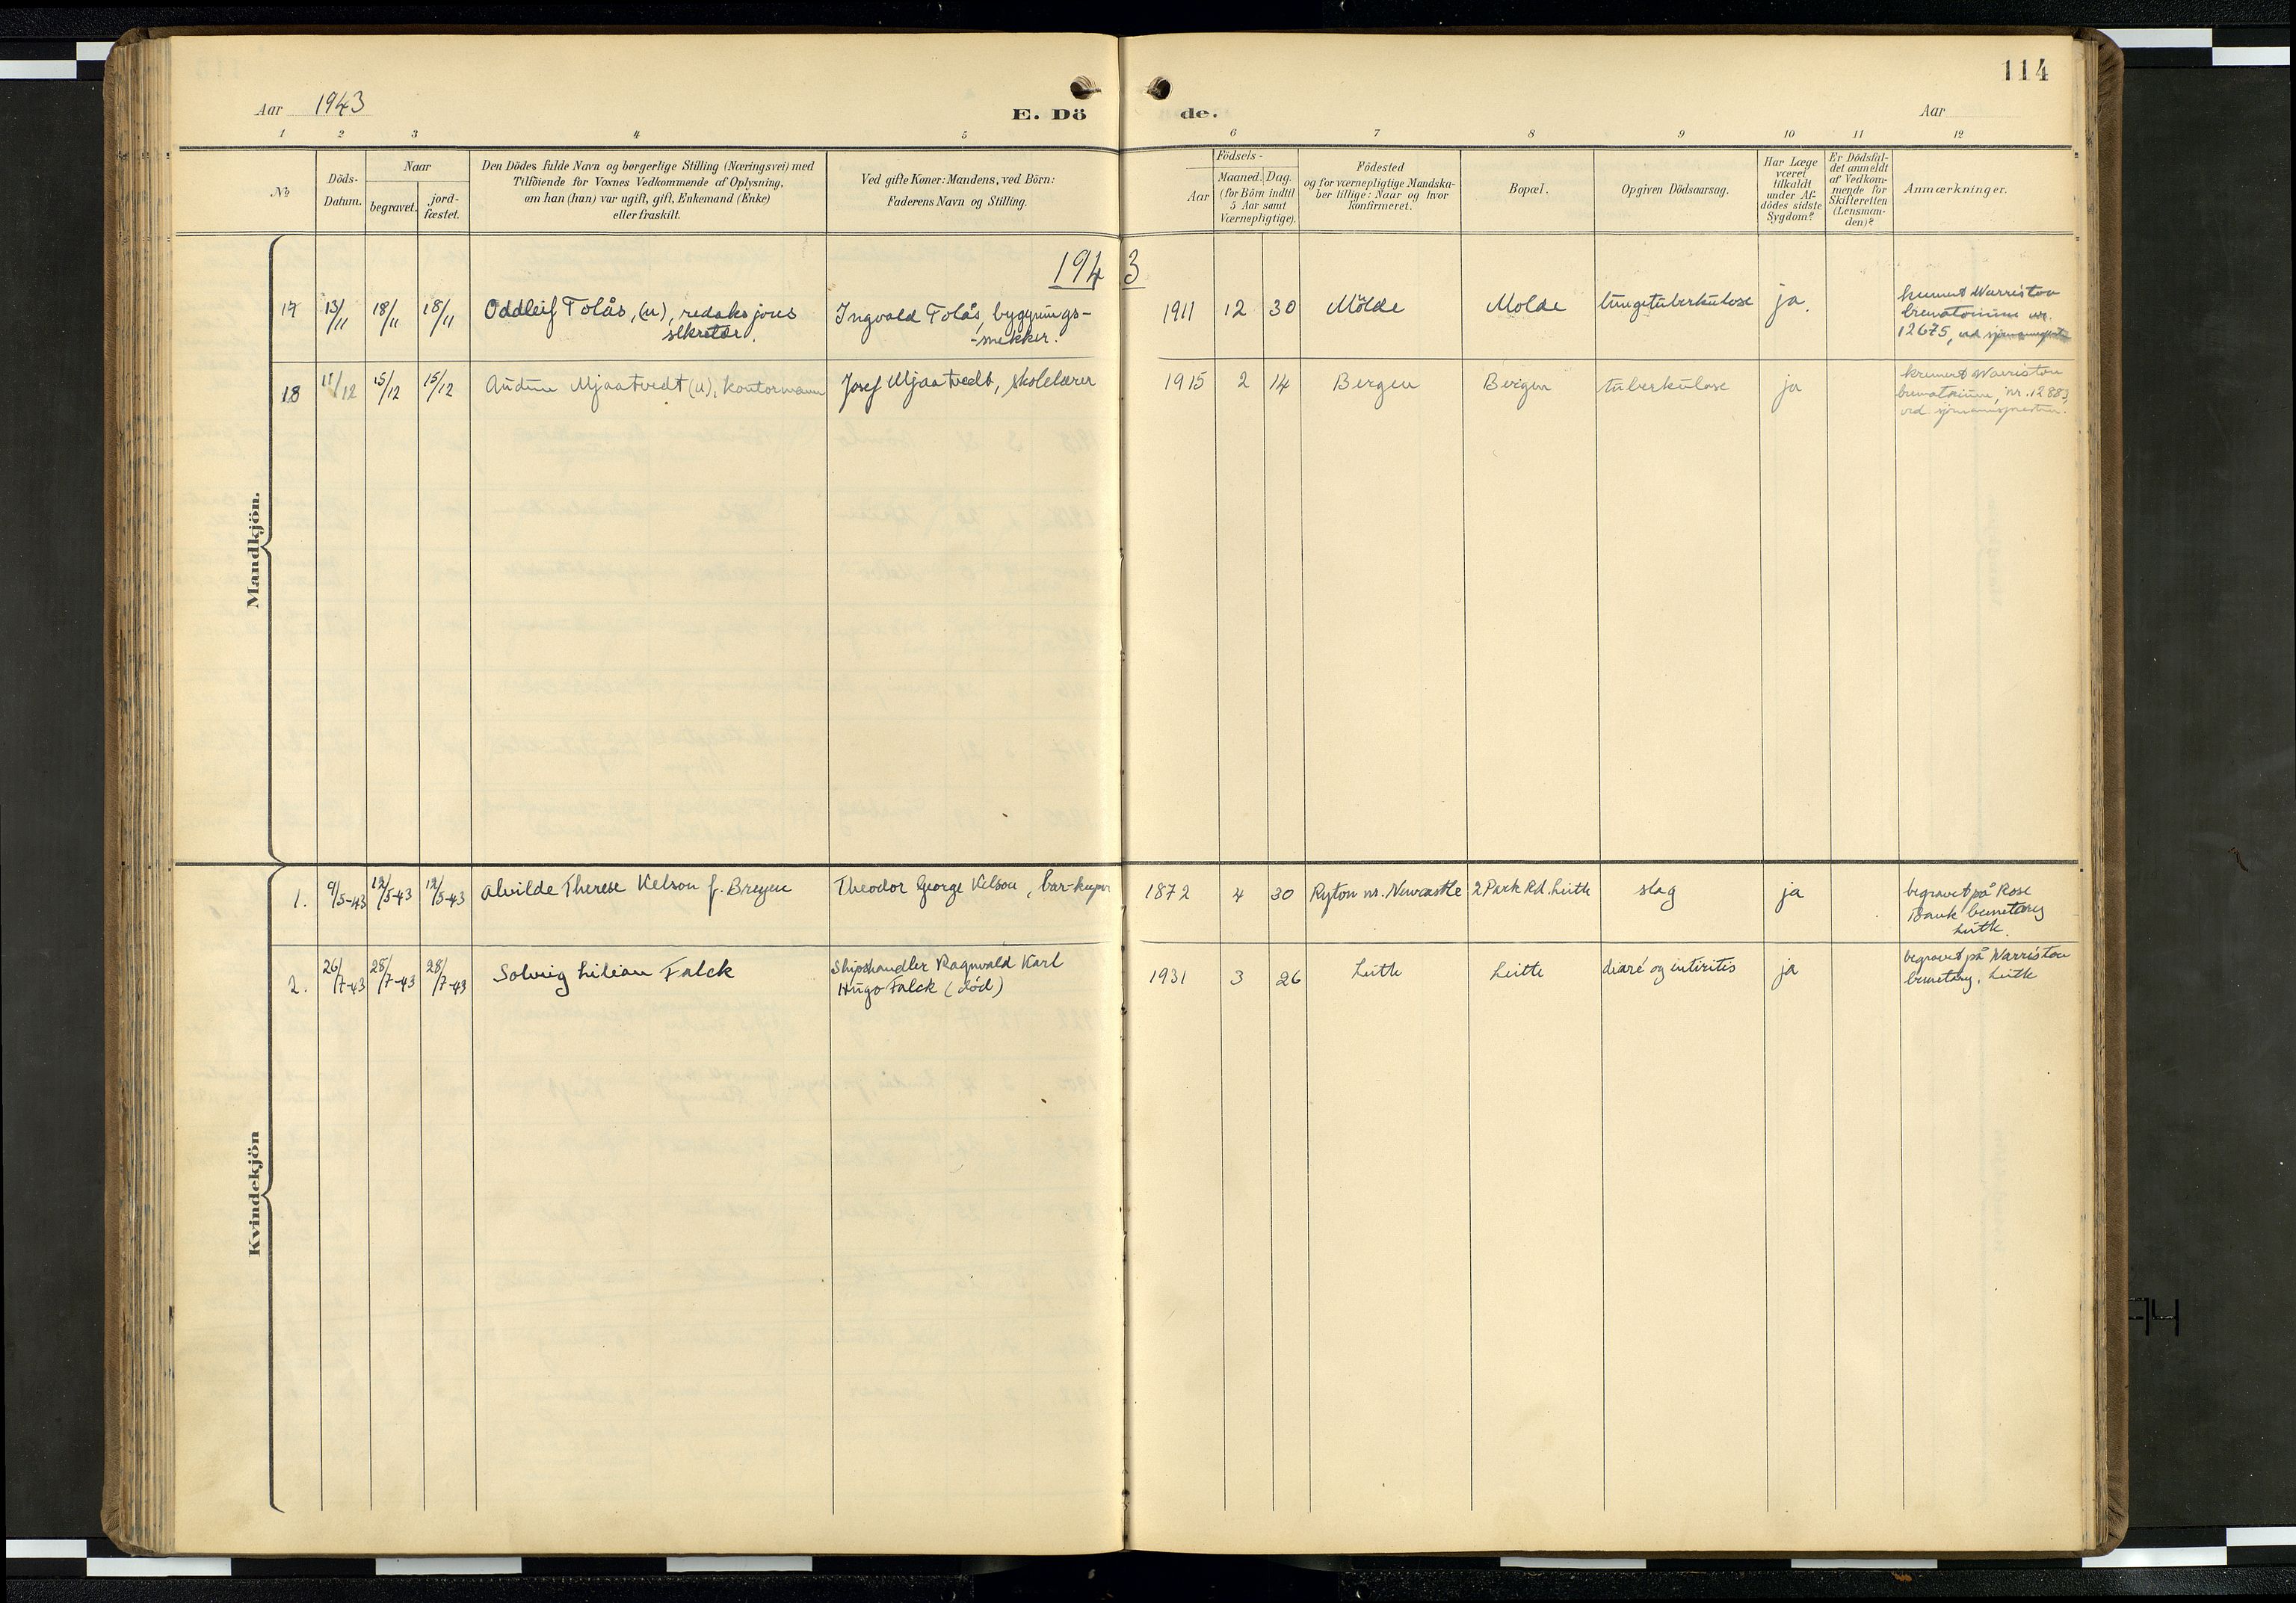 114
Aar 1943
E. Dö de.
Aar
1 2 3 4 5 6 7 8 9 10 11 12
No
Döds-
Datum.
Naar
begravet.
jord-
fæstet.
Den Dödes fulde Navn og borgerlige Stilling (Næringsvei) med
Tilföiende for Voxnes Vedkommende af Oplysning,
om han (hun) var ugift, gift, Enkemand (Enke)
eller fraskilt.
Ved gifte Koner: Mandens, ved Börn:
Faderens Navn og Stilling.
Födsels-
Aar
Maaned. Dag.
(for Börn indtil
5 Aar samt
Værnepligtige).
Födested
og for værnepligtige Mandska-
ber tillige: Naar og hvor
konfirmeret.
Bopæl.
Opgiven Dödsaarsag.
Har Læge
været
tilkaldt
under Af-
dödes sidste
Sygdom?
Er Dödsfal-
det anmeldt
af Vedkom-
mende for
Skifteretten
(Lensman-
den)?
Anmærkninger.
1943
Mandkjön.
17 13/11 18/11 18/11 Oddleif Tolås, (u), redaksjons
sekretær.
Ingvald Tolås, bygnings-
-snekker.
1911 12 30 Molde Molde lungetuberkulose ja.
kremert Warriston
crematorium nr.
12675,
18 11/12 15/12 15/12 Audun Mjaatvedt (u), kontormann Josef Mjaatvedt, skolelærer 1915 2 14 Bergen Bergen tuberkulose ja
kremert Warriston
crematorium, nr. 12883,
ved sjømannspresten.
Kvindekjön
1. 9/5-43 12/5-43 12/5-43 Alvilde Therese Kelson f. Breyen Theodor George Kelson, bar-keeper 1872 4 30 Ryton nr. Newcastle 2 Park Rd. Leith slag ja
begravet på Rose
Bank cemetary
Leith.
2. 26/7-43 28/7-43 28/7-43 Solveig Lilian Falck
Shipschandler Ragnvald Karl
Hugo Falck (død)
1931 3 26 Leith Leith diaré og intiritis ja
begravet på Warriston
cemetary, Leith